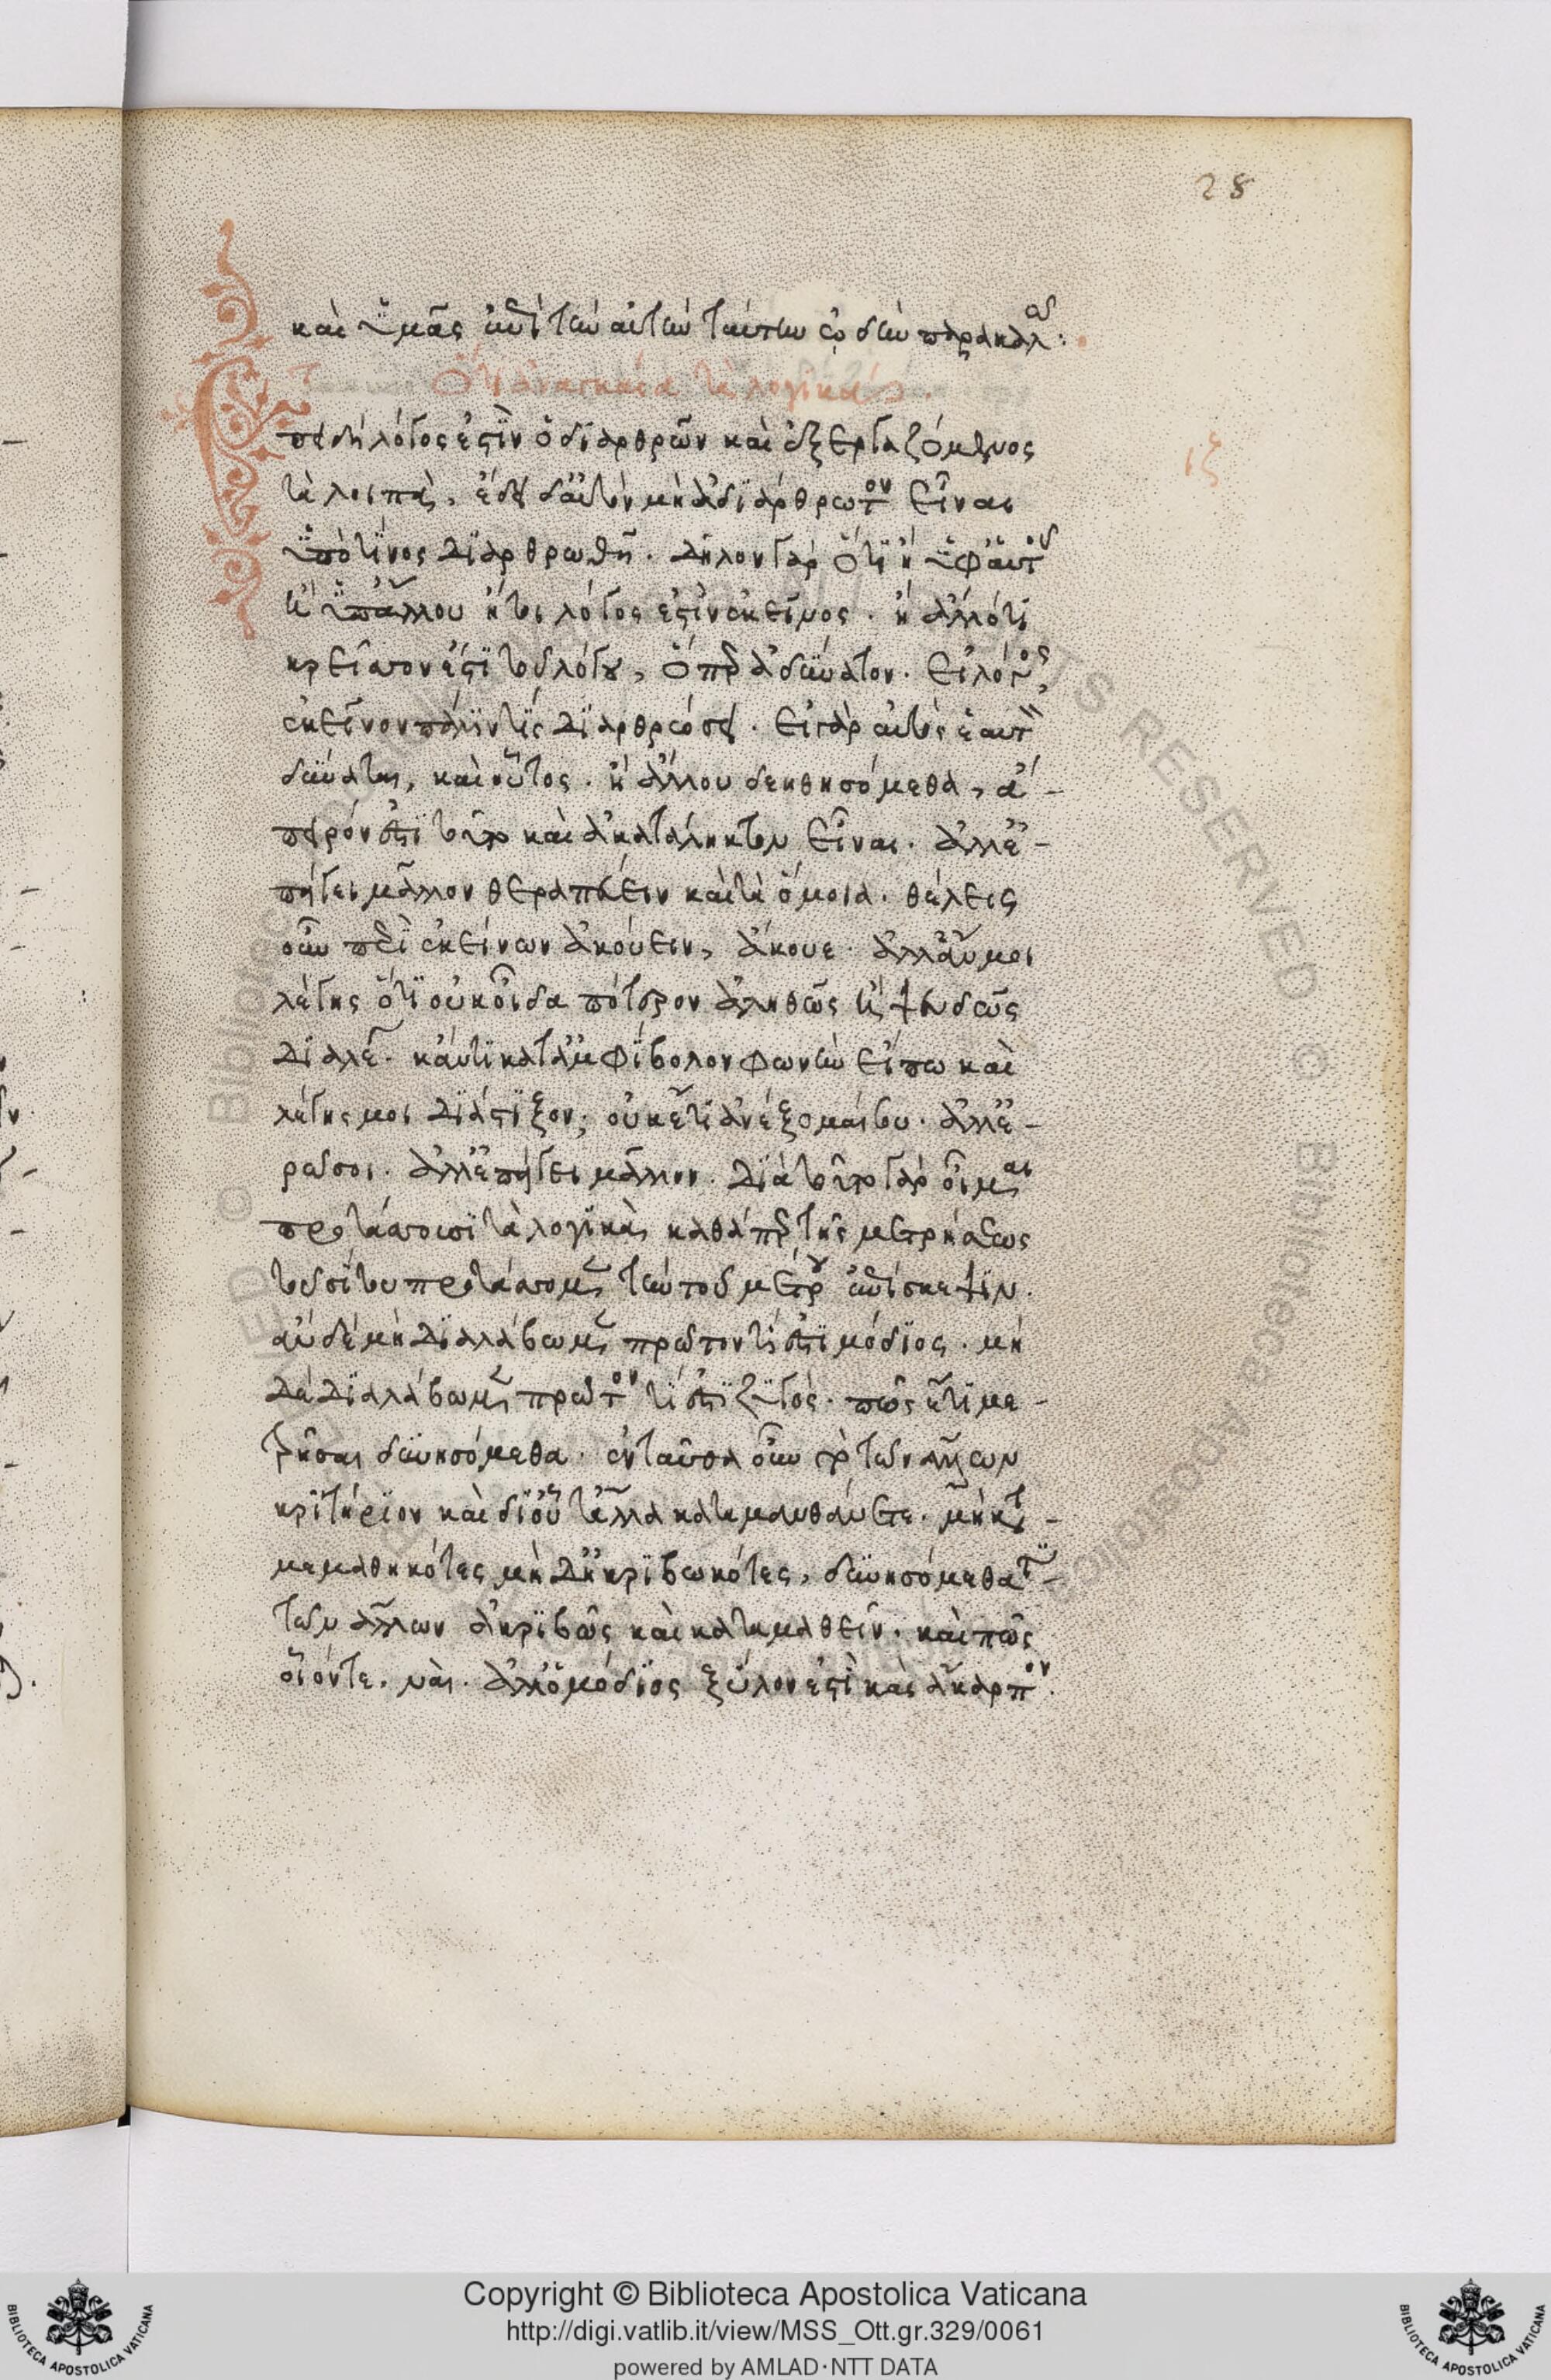 28
καὶ ὑμᾶς ἐπὶ τὴν αὐτὴν ταύτην ᾠδὴν παρακαλῶ:
Ὅτι ἀναγκαῖα τὰ λογικά.
ιζ
Ἐπειδὴ λόγος ἐστὶν ὁ διαρθρῶν καὶ ἐξεργαζόμενος
τὰ λοιπὰ, ἔδει δ' αὐτὸν μὴ ἀδιάρθρωτον εἶναι
ὑπὸ τίνος διαρθρωθῇ. δῆλον γὰρ ὅτι ἢ ὑφ' αὑτοῦ
ἢ ὑπ' ἄλλου ἤτοι λόγος ἐστὶν ἐκεῖνος. ἢ ἄλλό τι
κρεῖσσον ἐστὶ τοῦ λόγου, ὅπερ ἀδύνατον. εἰ λόγος,
ἐκεῖνον πάλιν τίς διαρθρώσει. εἰ γὰρ αὐτὸς ἑαυτὸν
δύναται, καὶ οὗτος. ἢ ἄλλου δεηθησόμεθα, ἄ-
πειρον ἔσται τοῦτο καὶ ἀκατάληκτον εἶναι. ἀλλ' ἐ-
πείγει μᾶλλον θεραπεύειν καὶ τὰ ὅμοια. θέλεις
οὖν περὶ ἐκείνων ἀκούειν, ἄκουε. ἀλλ' ἄν μοι
λέγῃς ὅτι οὐκ οἶδα πότερον ἀληθῶς ἢ ψευδῶς
διαλέγῃ. κἄν τι κατ' ἀμφίβολον φωνὴν εἴπω καὶ
λέγῃς μοι διάστιξον, οὐκέτι ἀνέξομαί σου. ἀλλ' ἐ-
ρῶ σοι. ἀλλ' ἐπείγει μᾶλλον. διὰ τοῦτο γὰρ οἶμαι
προτάσσουσι τὰ λογικὰ, καθάπερ τῆς μετρήσεως
τοῦ σίτου προτάσσομεν τὴν τοῦ μέτρου ἐπίσκεψιν.
ἂν δὲ μὴ διαλάβωμεν πρῶτον τί ἐστι μόδιος. μὴ
δὲ διαλάβωμεν πρῶτον τί ἐστι ζυγός. πῶς ἔτι με-
τρῆσαι δυνησόμεθα. ἐνταῦθα οὖν τὸ τῶν ἄλλων
κριτήριον καὶ δι' οὗ τἆλλα καταμανθάνεται. μὴ κατα-
μεμαθηκότες μὴ δ' ἠκριβωκότες, δυνησόμεθά τι
τῶν ἄλλων ἀκριβῶς καὶ καταμαθεῖν. καὶ πῶς
οἷόν τε. ναὶ. ἀλλ' ὁ μόδιος ξύλον ἐστὶ καὶ ἄκαρπον.
Copyright © Biblioteca Apostolica Vaticana
http://digi.vatlib.it/view/MSS_Ott.gr.329/0061
powered by AMLAD·NTT DATA